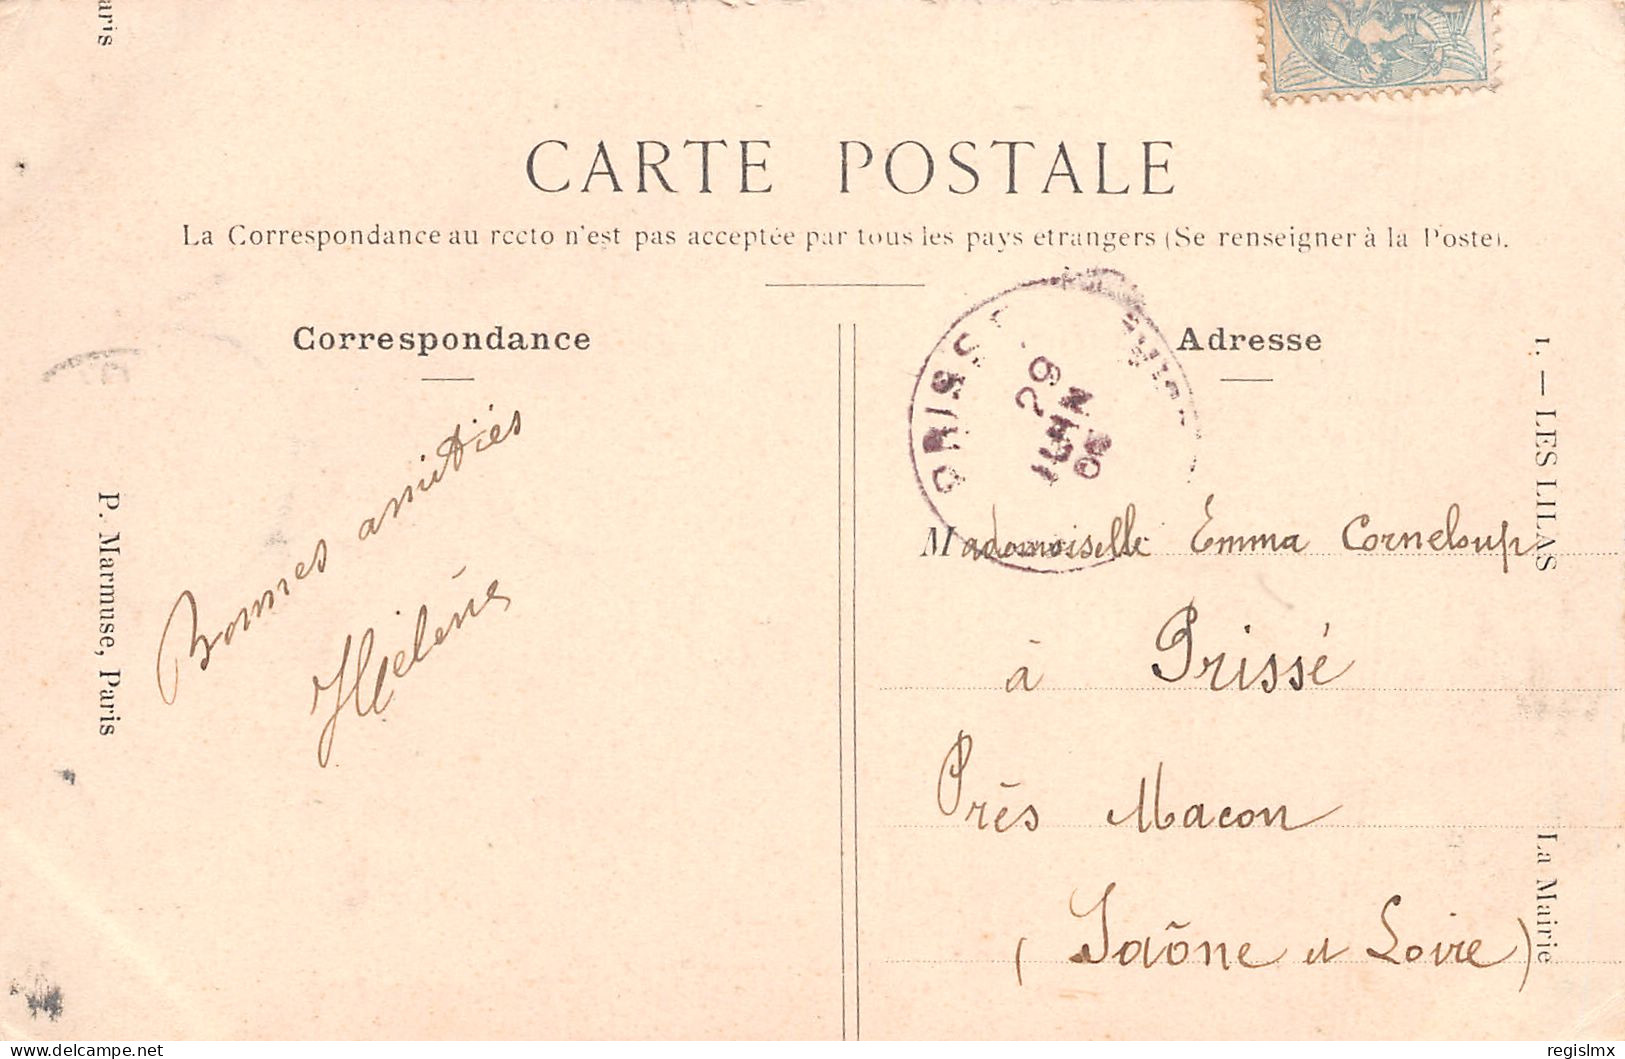 aris
CARTE POSTALE
La Correspondance au recto n'est pas acceptée par tous les pays etrangers (Se renseigner à la Poste).
Correspondance
Bonnes amitiés
Hélène
P. Marmuse, Paris
Adresse
29
JUIN
05
Mademoiselle Emma Corneloup
à Prissé
Près Macon
(Saône et Loire)
1. — LES LILAS
La Mairie
regislmx